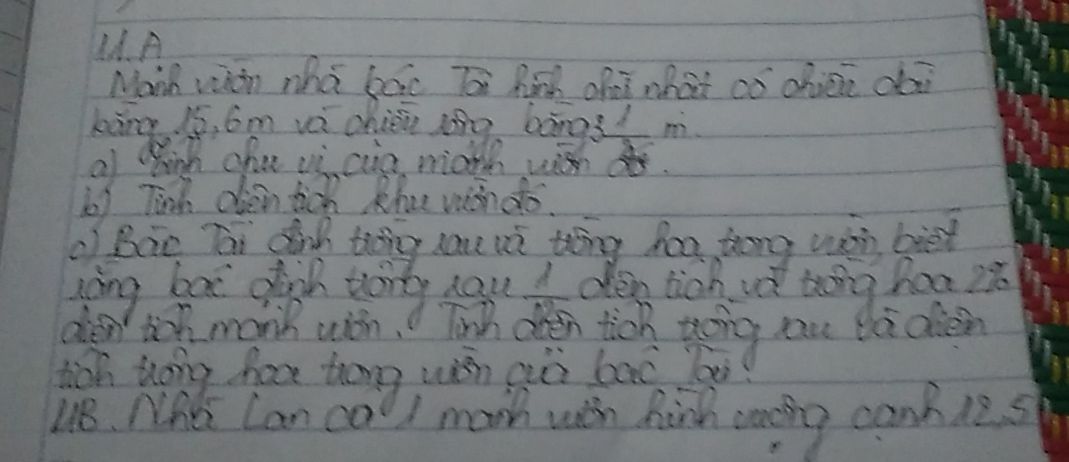 11.A
Mảnh vườn nhà bác Tài hình chữ nhật có chiều dài
bằng 15,6m và chiều rộng bằng 3 1 m.
a) Tính chu vi của mảnh vườn đó.
b) Tính diện tích khu vườn đó.
c) Bác Tài định trồng rau và trồng hoa trong vườn, biết
rằng bác định trồng rau 1 diện tích và trồng hoa
diện tích mảnh vườn. Tính diện tích trồng rau và diện
tích trồng hoa trong vườn của bác Tài.
11B. Nhà Lan có 1 mảnh vườn hình vuông cạnh 12,5